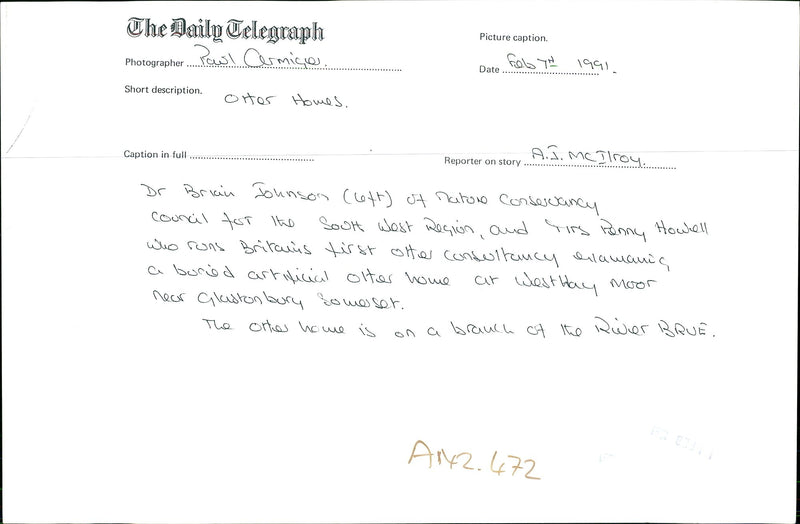 The Daily Telegraph
Picture caption.
Photographer Paul Armiger.
Date Feb 7th 1991.
Short description.
Otter Homes.
Caption in full
Reporter on story A.J. McIlroy.
Dr Brian Johnson (left) of Nature Conservancy
Council for the South West Region, and Mrs Penny Howell
who runs Britains first otter consultancy examaning
a buried artificial otter home at Westhay Moor
near Glastonbury Somerset.
The otter home is on a branch of the River BRUE.
AN2.472